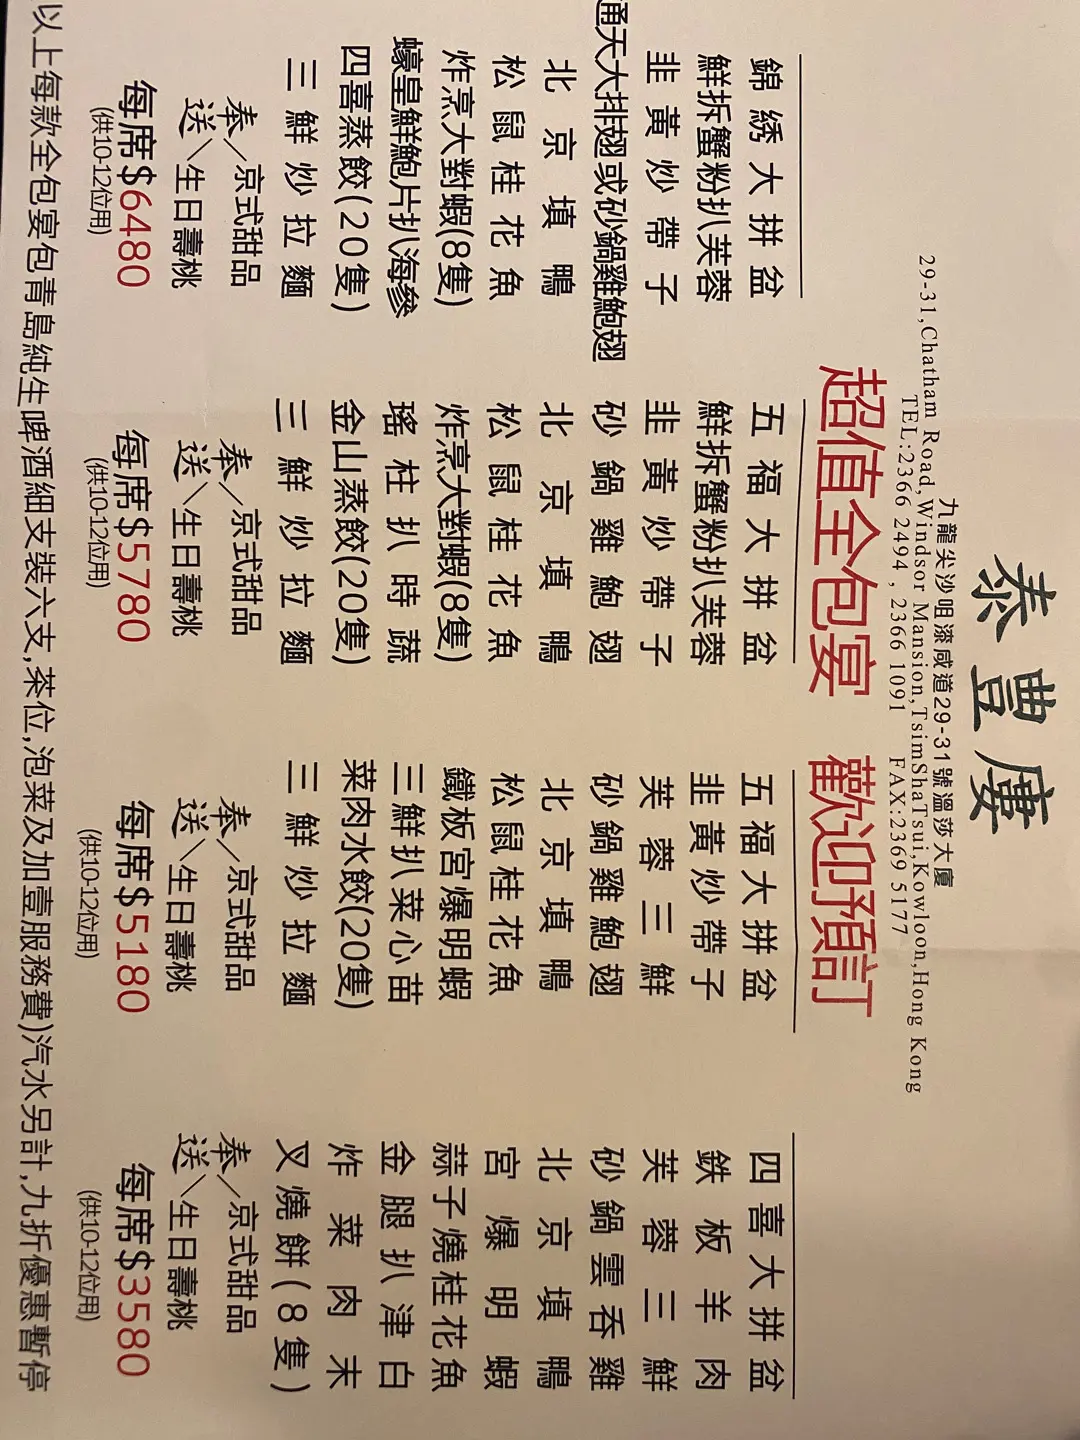 泰豐廔
九龍尖沙咀漆咸道29-31號溫莎大廈
29-31,Chatham Road,Windsor Mansion,TsimShaTsui,Kowloon,Hong Kong
TEL:2366 2494 , 2366 1091 FAX:2369 5177
超值全包宴 歡迎預訂
錦綉大拼盆
鮮拆蟹粉扒芙蓉
韭黃炒帶子
通天大排翅或砂鍋雞鮑翅
北京填鴨
松鼠桂花魚
炸烹大對蝦(8隻)
蠔皇鮮鮑片扒海參
四喜蒸餃(20隻)
三鮮炒拉麵
奉送
京式甜品
生日壽桃
每席$6480
(供10-12位用)
五福大拼盆
鮮拆蟹粉扒芙蓉
韭黃炒帶子
砂鍋雞鮑翅
北京填鴨
松鼠桂花魚
炸烹大對蝦(8隻)
瑤柱扒時蔬
金山蒸餃(20隻)
三鮮炒拉麵
奉送
京式甜品
生日壽桃
每席$5780
(供10-12位用)
五福大拼盆
韭黃炒帶子
芙蓉三鮮
砂鍋雞鮑翅
北京填鴨
松鼠桂花魚
鐵板宮爆明蝦
三鮮扒菜心苗
菜肉水餃(20隻)
三鮮炒拉麵
奉送
京式甜品
生日壽桃
每席$5180
(供10-12位用)
四喜大拼盆
鉄板羊肉
芙蓉三鮮
砂鍋雲吞雞
北京填鴨
宮爆明蝦
蒜子燒桂花魚
金腿扒津白
炸菜肉末
叉燒餅(8隻)
奉送
京式甜品
生日壽桃
每席$3580
(供10-12位用)
以上每款全包宴包青島純生啤酒細支裝六支,茶位,泡菜及加壹服務費)汽水另計,九折優惠暫停